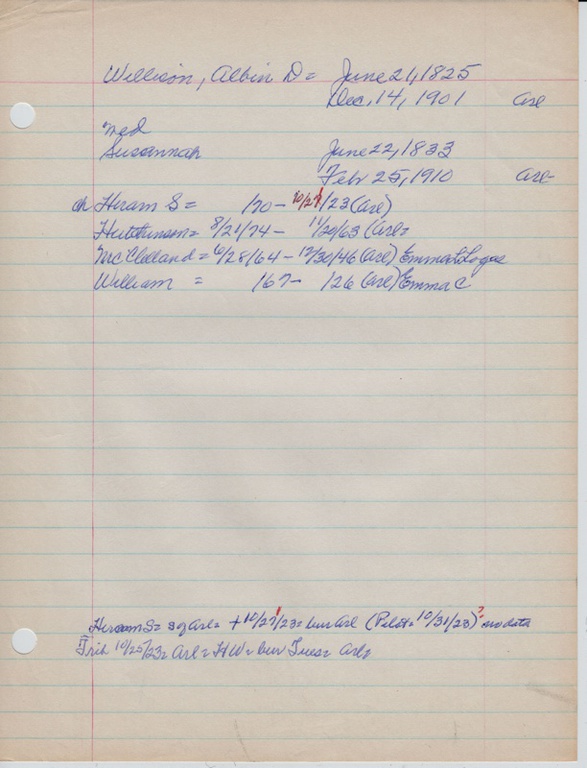 Willison, Albin D = June 21, 1825
Dec. 14, 1901 Arl
med
Susannah June 22, 1833
Feb 25, 1910 Arl-
ch Hiram S = /70 - 10/27/23 (Arl)
Hutchinson = 8/21/74 - 11/20/63 (Arl =
McClelland = 6/28/64 - 12/30/46 (Arl) Emma Logue
William = 167- 126 (Arl) Emma C
Hiram S = Arl = + 10/27/23 = bur Arl (Pilot = 10/31/23)? no data
10/25/23 = Arl = HW = bur Tues = Arl =